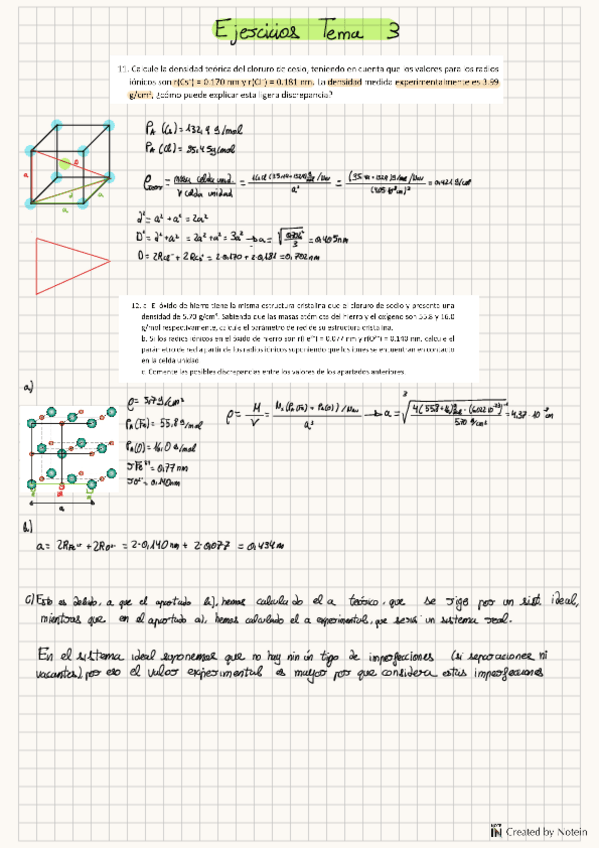 Ejercicios Tema 3
11. Calcule la densidad teórica del cloruro de cesio, teniendo en cuenta que los valores para los radios
iónicos son r(Cs⁺) = 0.170 nm y r(Cl⁻) = 0.181 nm. La densidad medida experimentalmente es 3.99
g/cm³, ¿cómo puede explicar esta ligera discrepancia?
PA (Cs) = 132,9 g/mol
PA (Cl) = 35,45 g/mol
a
D
d
a
a
masa celda unidad
V celda unidad
a³
d² = a² + a² = 2a²
D² = d² + a² = 2a² + a² = 3a² → a = = 0,405 nm
D = 2RCs⁺ + 2RCl⁻ = 2·0,170 + 2·0,181 = 0,702 nm
12. a. El óxido de hierro tiene la misma estructura cristalina que el cloruro de sodio y presenta una
densidad de 5.70 g/cm³. Sabiendo que las masas atómicas del hierro y el oxígeno son 55.8 y 16.0
g/mol respectivamente, calcule el parámetro de red de su estructura cristalina.
b. Si los radios iónicos en el óxido de hierro son r(Fe²⁺) = 0.077 nm y r(O²⁻) = 0.140 nm, calcule el
parámetro de red a partir de los radios iónicos suponiendo que los iones se encuentran en contacto
en la celda unidad.
c. Comente las posibles discrepancias entre los valores de los apartados anteriores
a)
ρ = 5,7 g/cm³
PA (Fe) = 55,8 g/mol
PA (O) = 16,0 g/mol
rFe²⁺ = 0,77 nm
rO²⁻ = 0,140 nm
a
b)
a = 2RFe²⁺ + 2RO²⁻ = 2·0,140 nm + 2·0,077 = 0,434 nm
c) Esto es debido, a que el apartado b), hemos calculado el a teórico, que se rige por un sist. ideal,
mientras que en el apartado a), hemos calculado el a experimental, que sería un sistema real.
En el sistema ideal suponemos que no hay nin ún tipo de imperfecciones (si separaciones ni
vacantes) por eso el valor experimental es mayor por que considera estas imperfecciones
NOTE IN Created by Notein